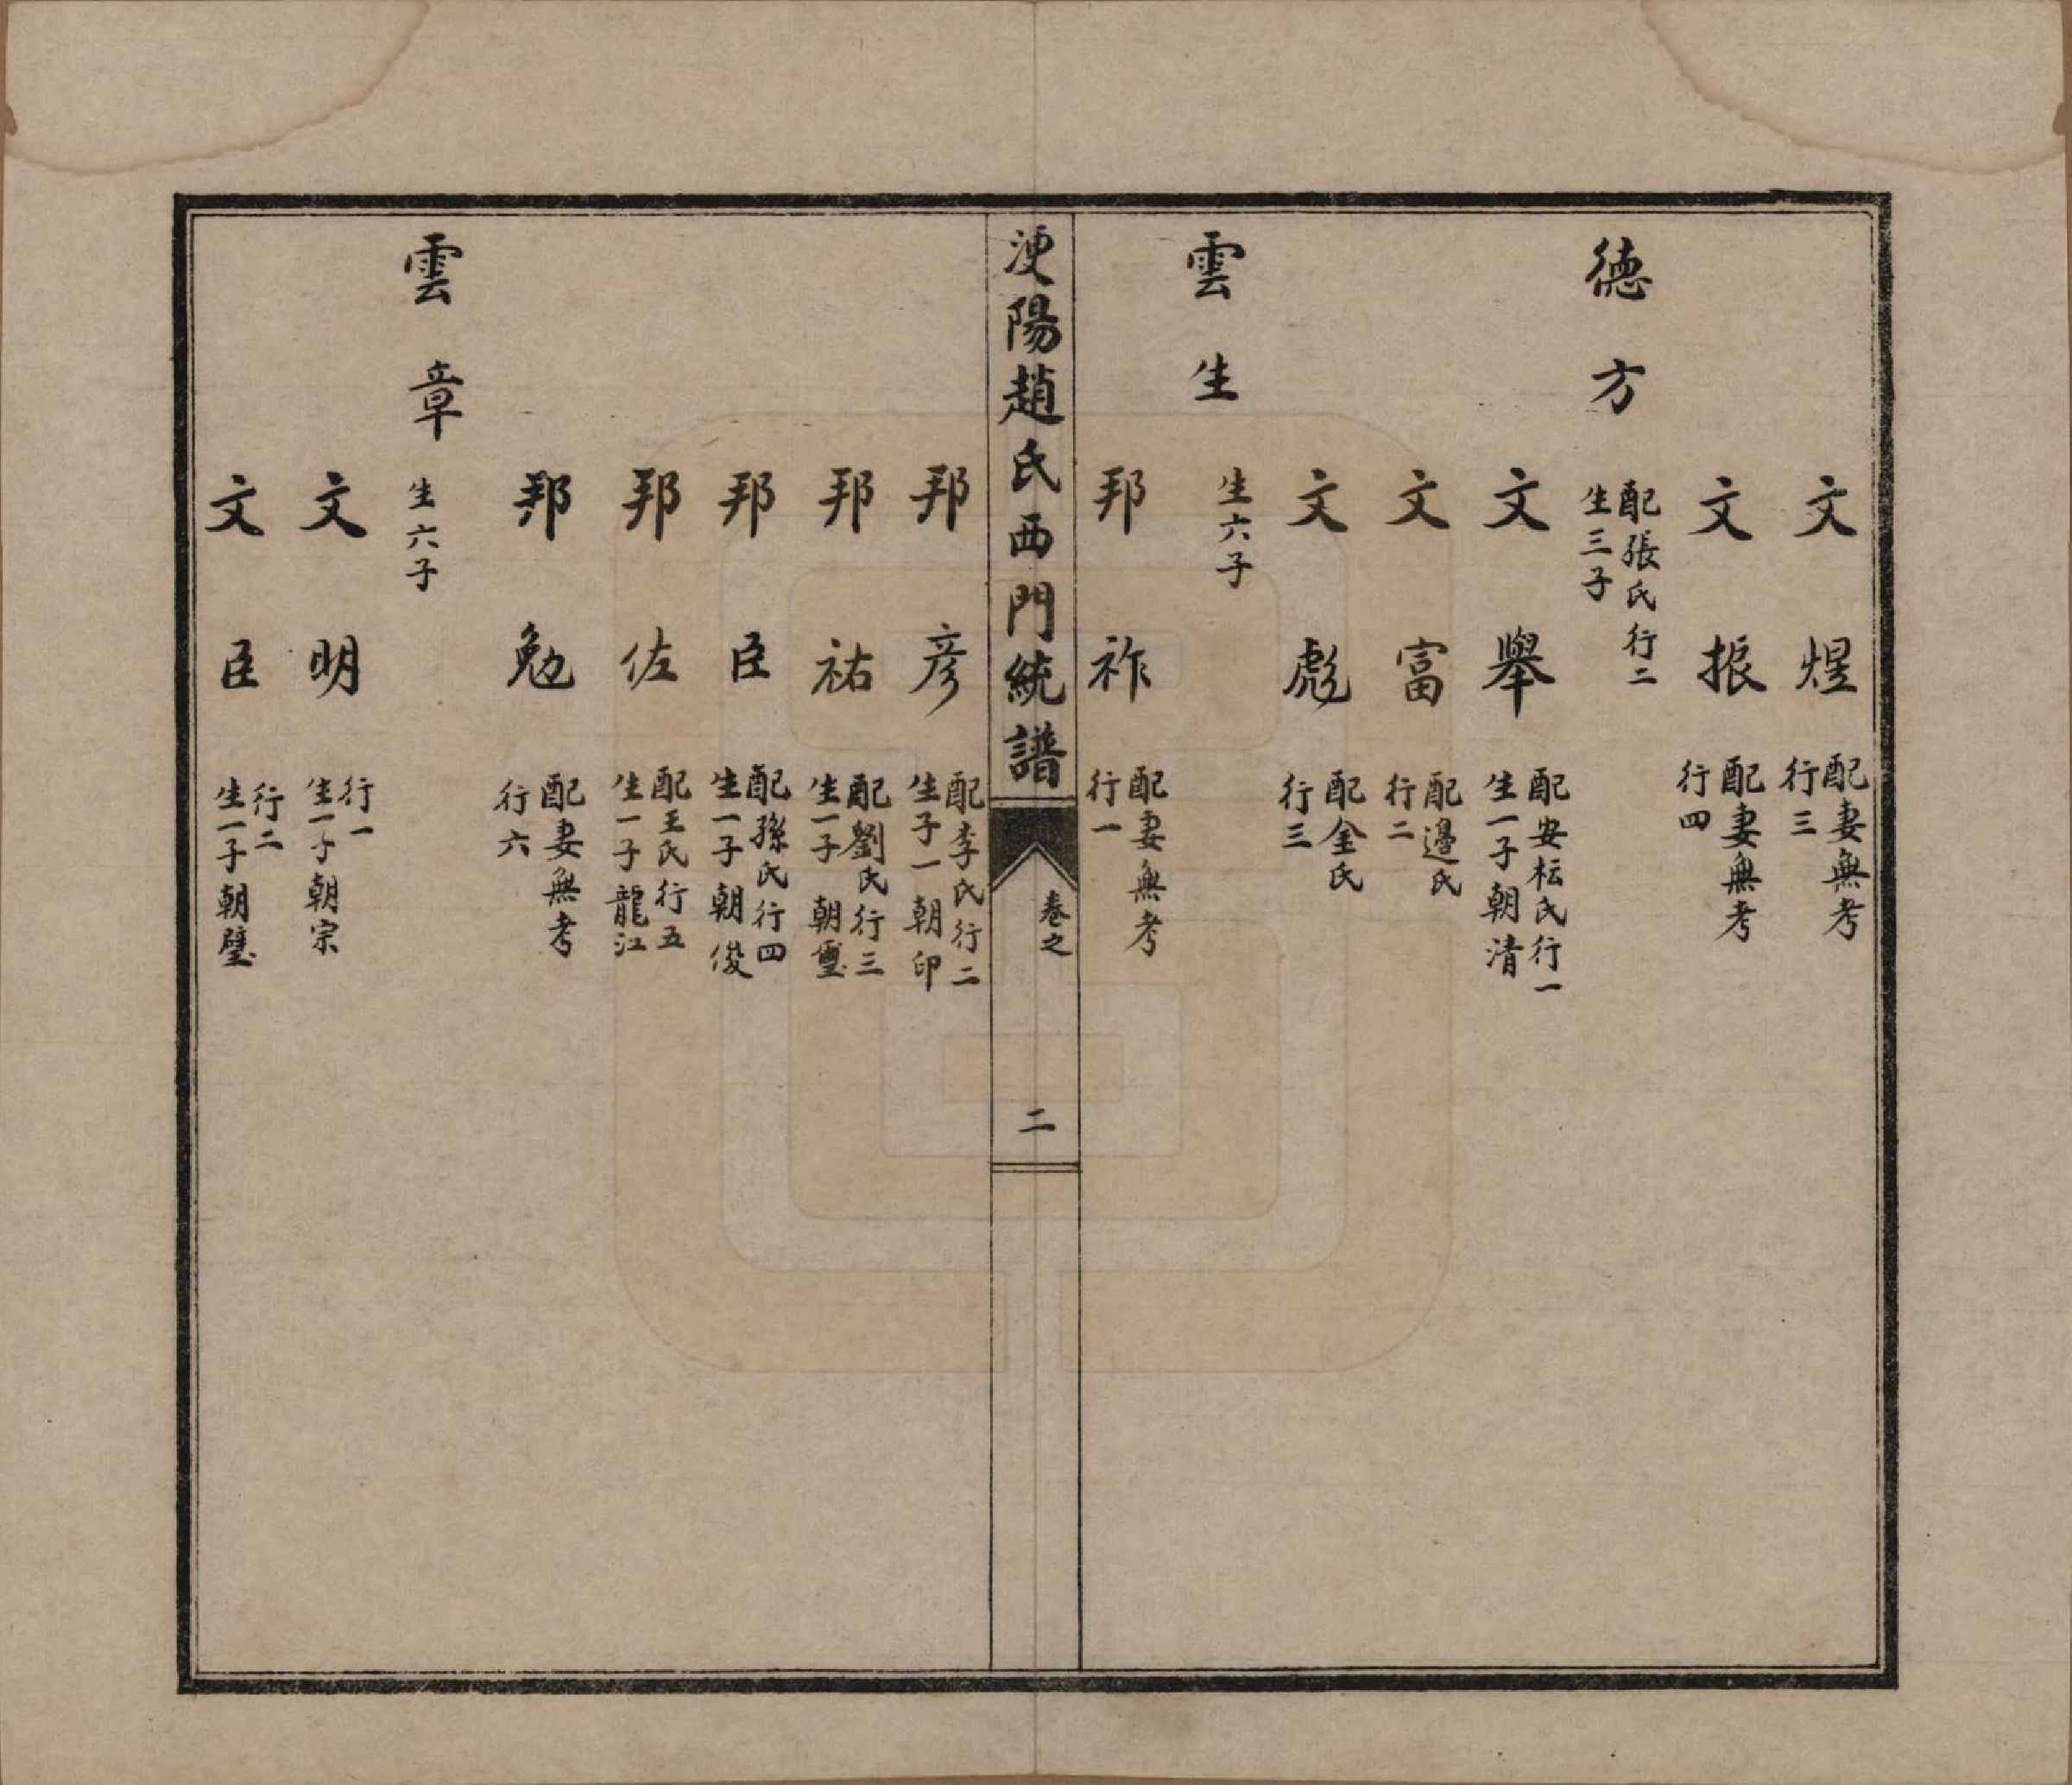 文煜
配妻無考
行三
文振
配妻無考
行四
德方
配張氏行二
生三子
文舉
配安耘氏行一
生一子朝清
文富
配邊氏
行二
文彪
配金氏
行三
雲生
生六子
邦祚
配妻無考
行一
浭陽趙氏西門統譜
卷之
二
邦彦
配李氏行二
生子一朝印
邦祐
配劉氏行三
生一子朝璽
邦臣
配孫氏行四
生一子朝俊
邦佐
配王氏行五
生一子龍江
邦勉
配妻無考
行六
雲章
生六子
文明
行一
生一子朝宗
文臣
行二
生一子朝璧